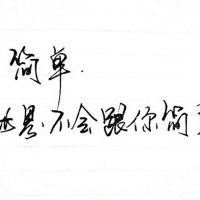 简单.
还是.不会跟你简